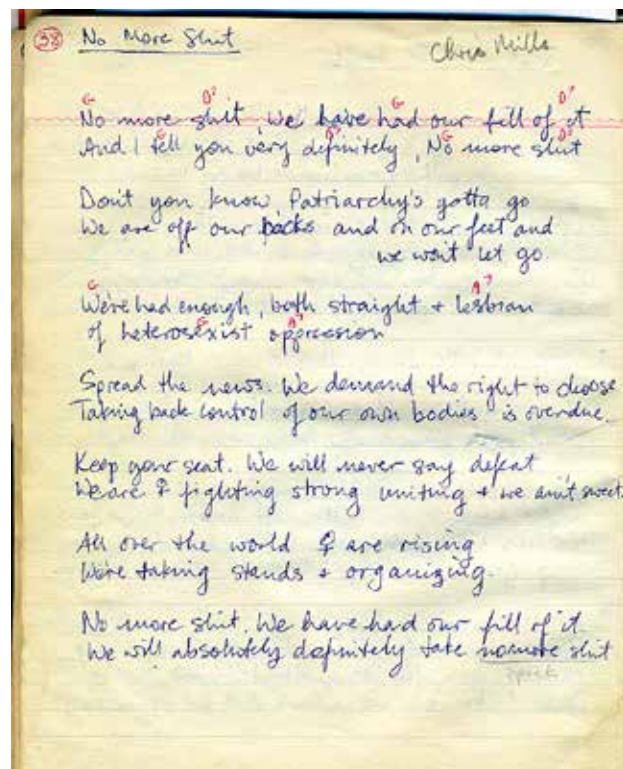 38 No More Shit
Chris Mills
G D7 G D7
No more shit, We have had our fill of it
G D7 G D7
And I tell you very definitely, No more shit
Don't you know, Patriarchy's gotta go
We are off our backs and on our feet and
we won't let go.
G A7
We've had enough, both straight + lesbian
G A7
of heterosexist oppression
Spread the news. We demand the right to choose
Taking back control of our own bodies is overdue.
Keep your seat. We will never say defeat
We are ♀ fighting strong uniting + we ain't sweet.
All over the world ♀ are rising
We're taking stands + organizing.
No more shit. We have had our fill of it
We will absolutely definitely take no more shit